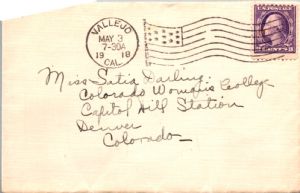 VALLEJO
MAY 3
7-30A
1918
CAL.
U.S. POSTAGE
3 CENTS 3
Miss Satia Darling.
Colorado Woman's College
Capitol Hill Station
Denver
Colorado